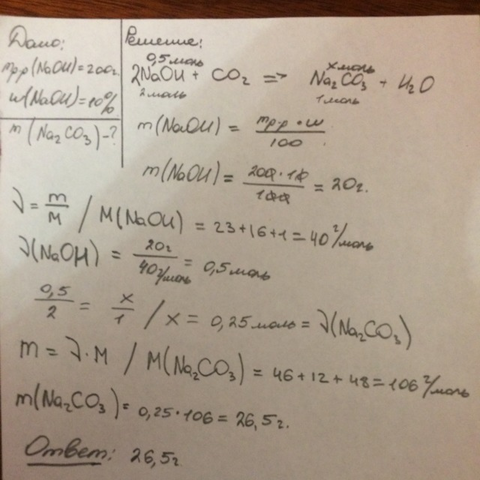 Дано:
mр.р(NaOH)=200г.
w(NaOH)=10%
m(Na₂CO₃)-?
Решение:
0,5моль xмоль
2NaOH + CO₂ => Na₂CO₃ + H₂O
2моль 1моль
m(NaOH) = mр.р • w / 100
m(NaOH) = 200·10 / 100 = 20г.
ν = m/M / M(NaOH) = 23+16+1=40 г/моль
ν(NaOH) = 20г / 40г/моль = 0,5моль
0,5/2 = x/1 / x = 0,25моль = ν(Na₂CO₃)
m = ν·M / M(Na₂CO₃) = 46+12+48=106 г/моль
m(Na₂CO₃) = 0,25·106 = 26,5г.
Ответ: 26,5г